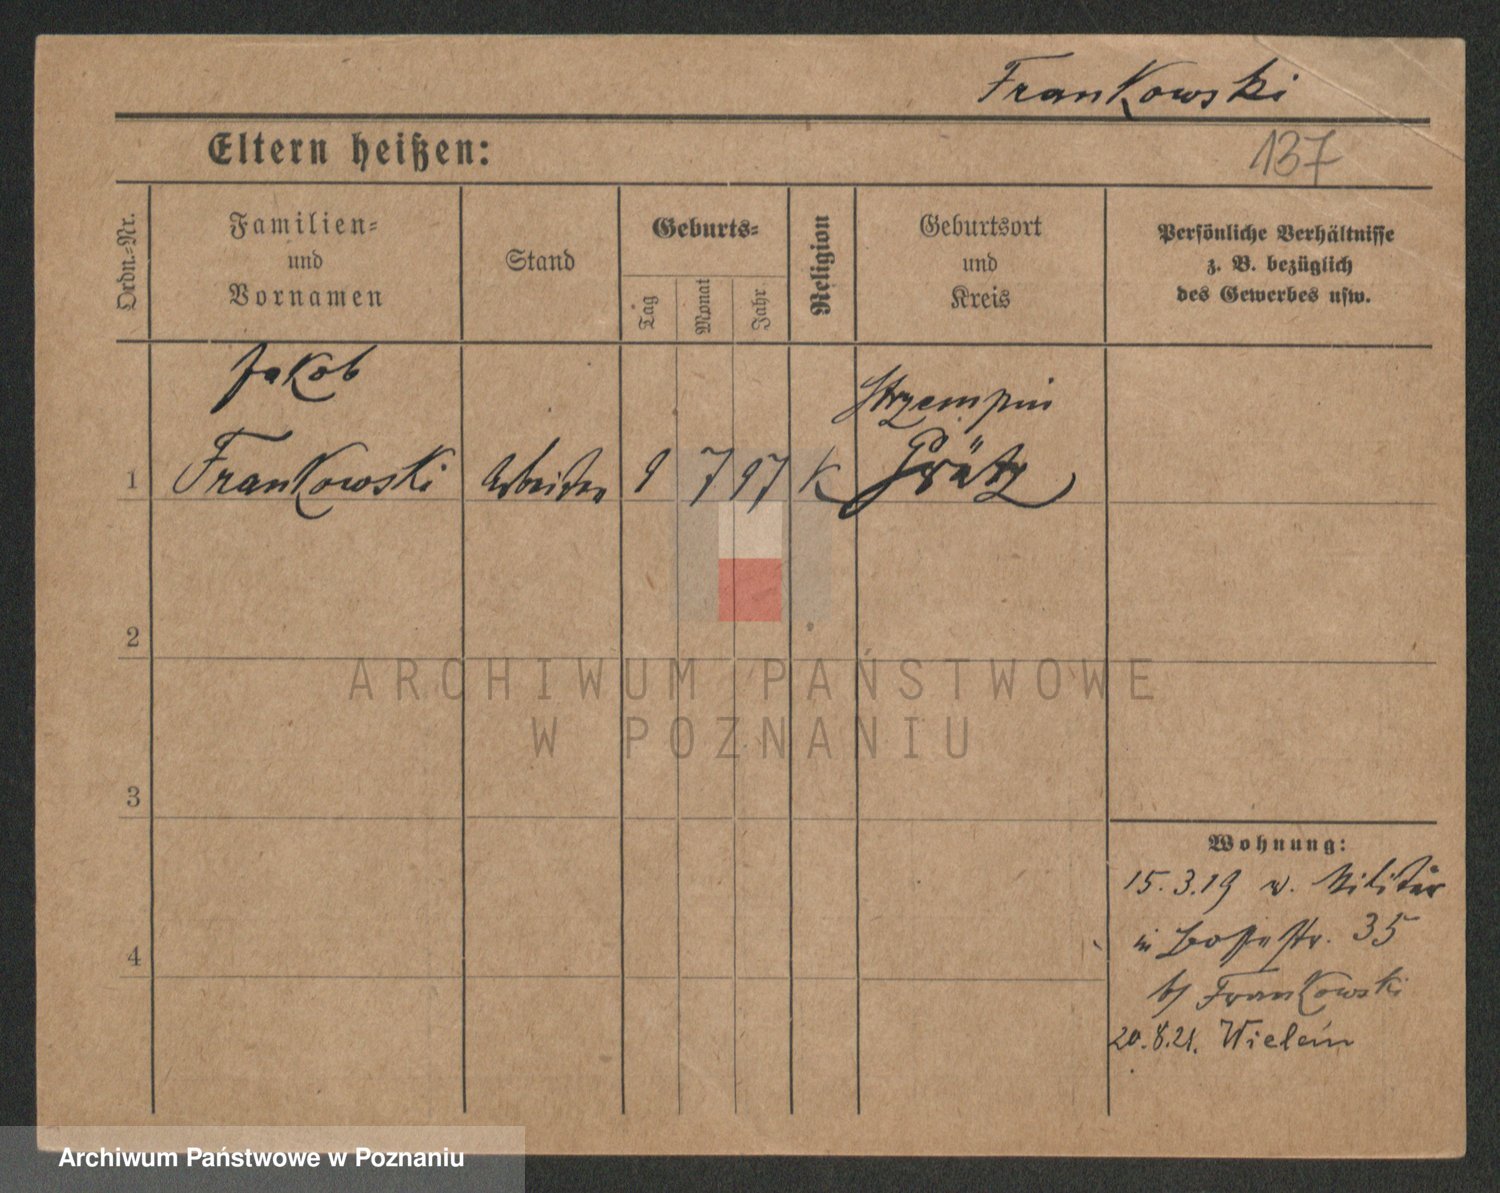 Frankowski
137
Eltern heißen:
Ordn.-Nr.
Familien=
und
Vornamen
Stand
Geburts=
Tag
Monat
Jahr.
Religion
Geburtsort
und
Kreis
Persönliche Verhältnisse
z. B. bezüglich
des Gewerbes usw.
Jakob
Strzempin
1 Frankowski Arbeiter 9 7 97 K Grätz
2
3
4
ARCHIWUM PAŃSTWOWE
W POZNANIU
Wohnung:
15.3.19 v. Militär
in 35
b/ Frankowski
20.8.21. Wielen
Archiwum Państwowe w Poznaniu